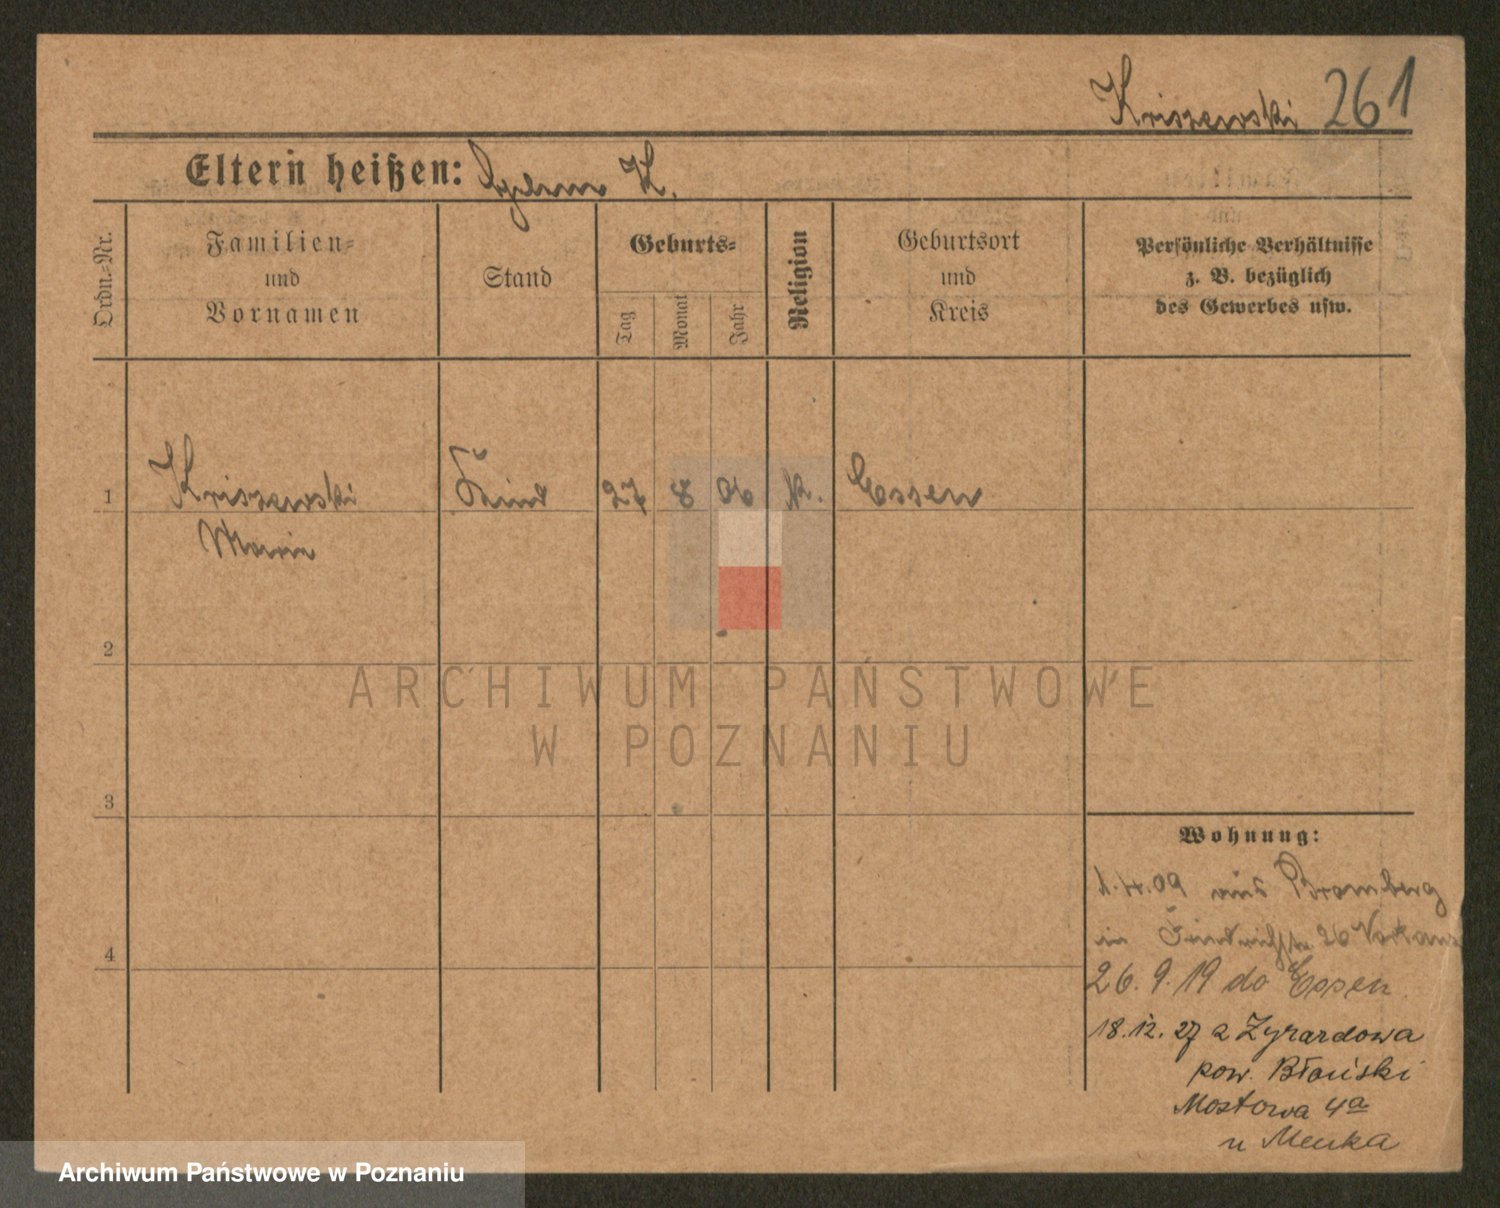 Kriszewski 261
Eltern heißen: K.
Ordn.=Nr.
Familien=
und
Vornamen
Stand
Geburts=
Tag
Monat
Jahr
Religion
Geburtsort
und
Kreis
Persönliche Verhältnisse
z. B. bezüglich
des Gewerbes usw.
1 Kriszewski Kind 27 8 06 k. Essen
Marie
2
3
4
Wohnung:
1.4.09 aus Bromberg
in Friedrichstr. 26
26.9.19 do Essen
18.12.27 z Żyrardowa
pow. Błoński
Mostowa 4a
u Menka
ARCHIWUM PAŃSTWOWE
W POZNANIU
Archiwum Państwowe w Poznaniu